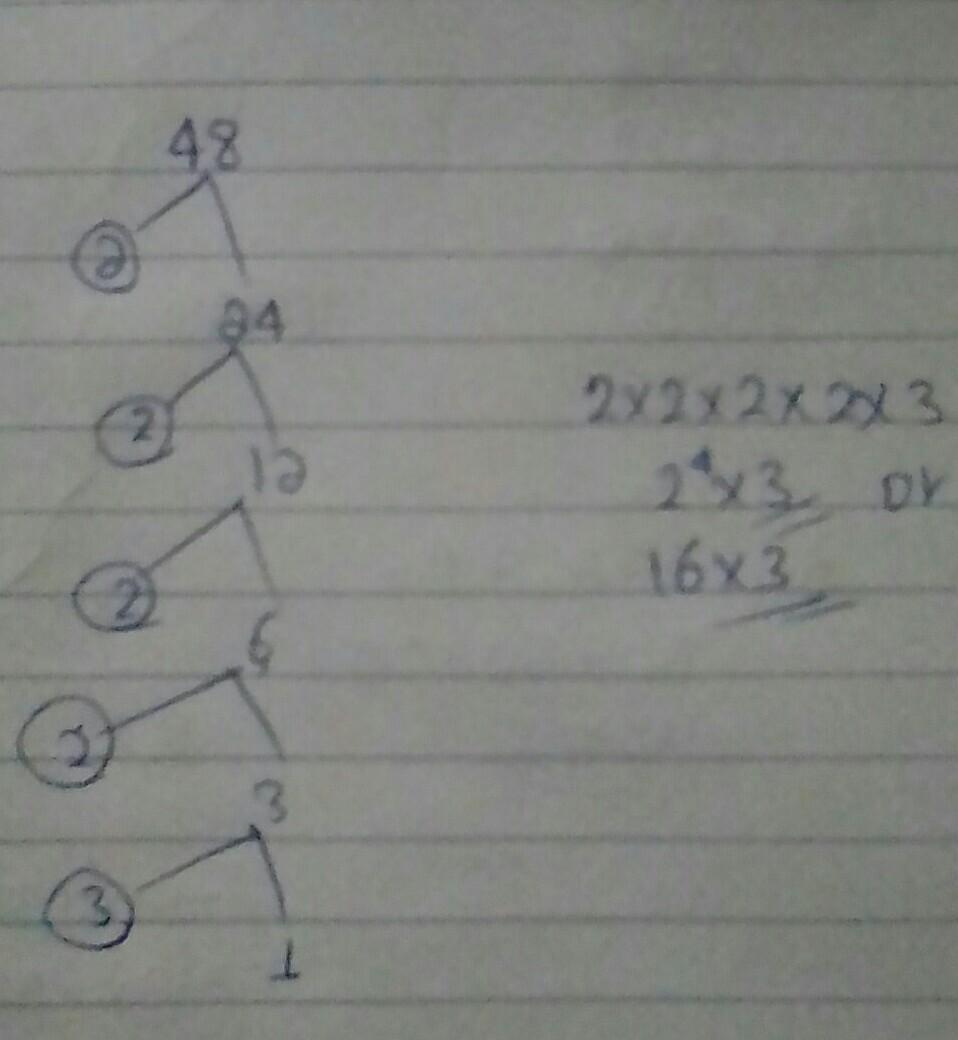 48
2
24
2
12
2
6
2
3
3
1
2x2x2x2x3
2⁴x3 or
16x3